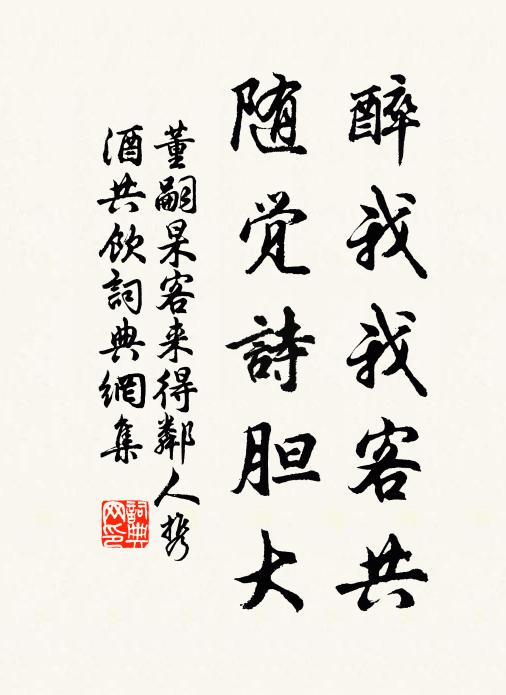 醉我我客共
随觉詩胆大
董嗣杲客来得鄰人携
酒共飲詞典網集
詞典网印